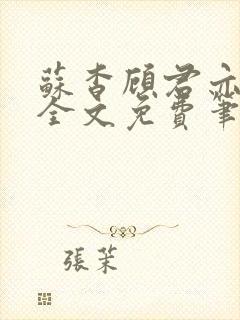 蘇杳顾君亦
全文免費筆
張茉